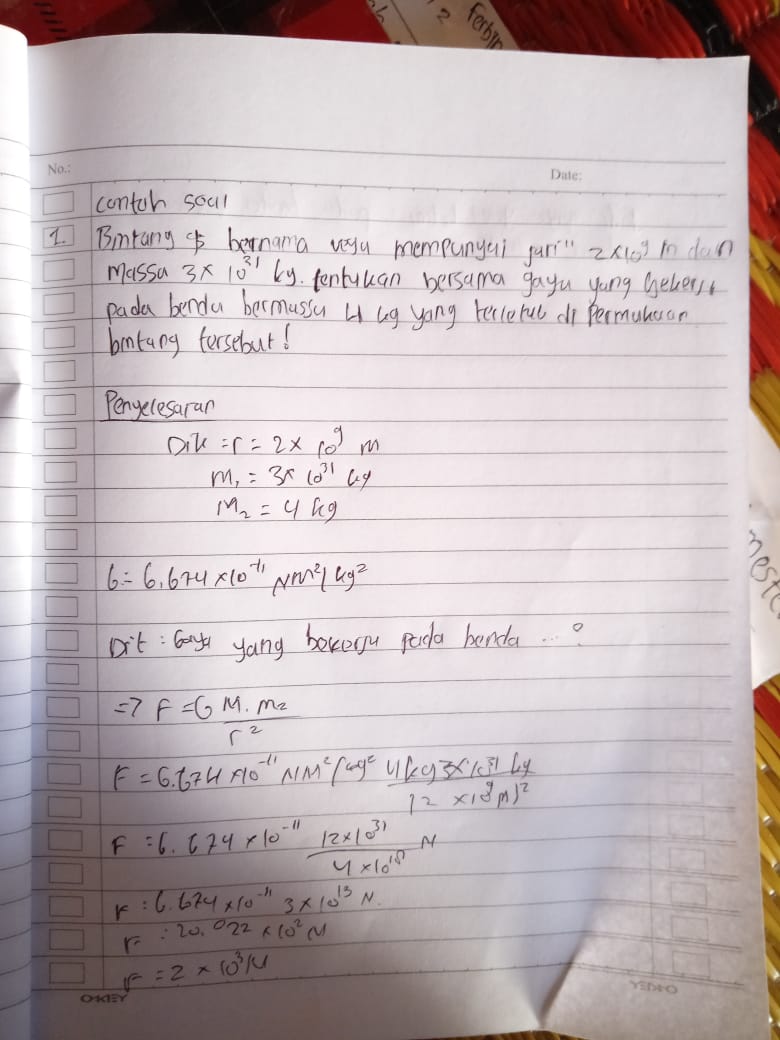 Ferbin
No.:
Date:
contoh soal
1. Bintang bernama vega mempunyai jari" 2x10⁹ m dan
massa 3x 10³¹ kg. tentukan bersama gaya yang bekerja
pada benda bermassa 4 kg yang terletak di permukaan
bintang tersebut!
Penyelesaian
Dik = r = 2x 10⁹ m
m₁ = 3x 10³¹ kg
M₂ = 4 kg
G = 6,674 x 10⁻¹¹ NM²/kg²
Dit : Gaya yang bekerja pada benda ...?
=> F = G M. m₂
r²
F = 6.674 x10⁻¹¹ NM²/kg² 4 kg 3x10³¹ kg
(2 x10⁹ m)²
F = 6.674 x 10⁻¹¹ 12x10³¹ N
4 x10¹⁸
F : 6.674 x 10⁻¹¹ 3 x 10¹³ N.
F : 20.022 x 10² N
F = 2 x 10³ N
OKEY
OKEY